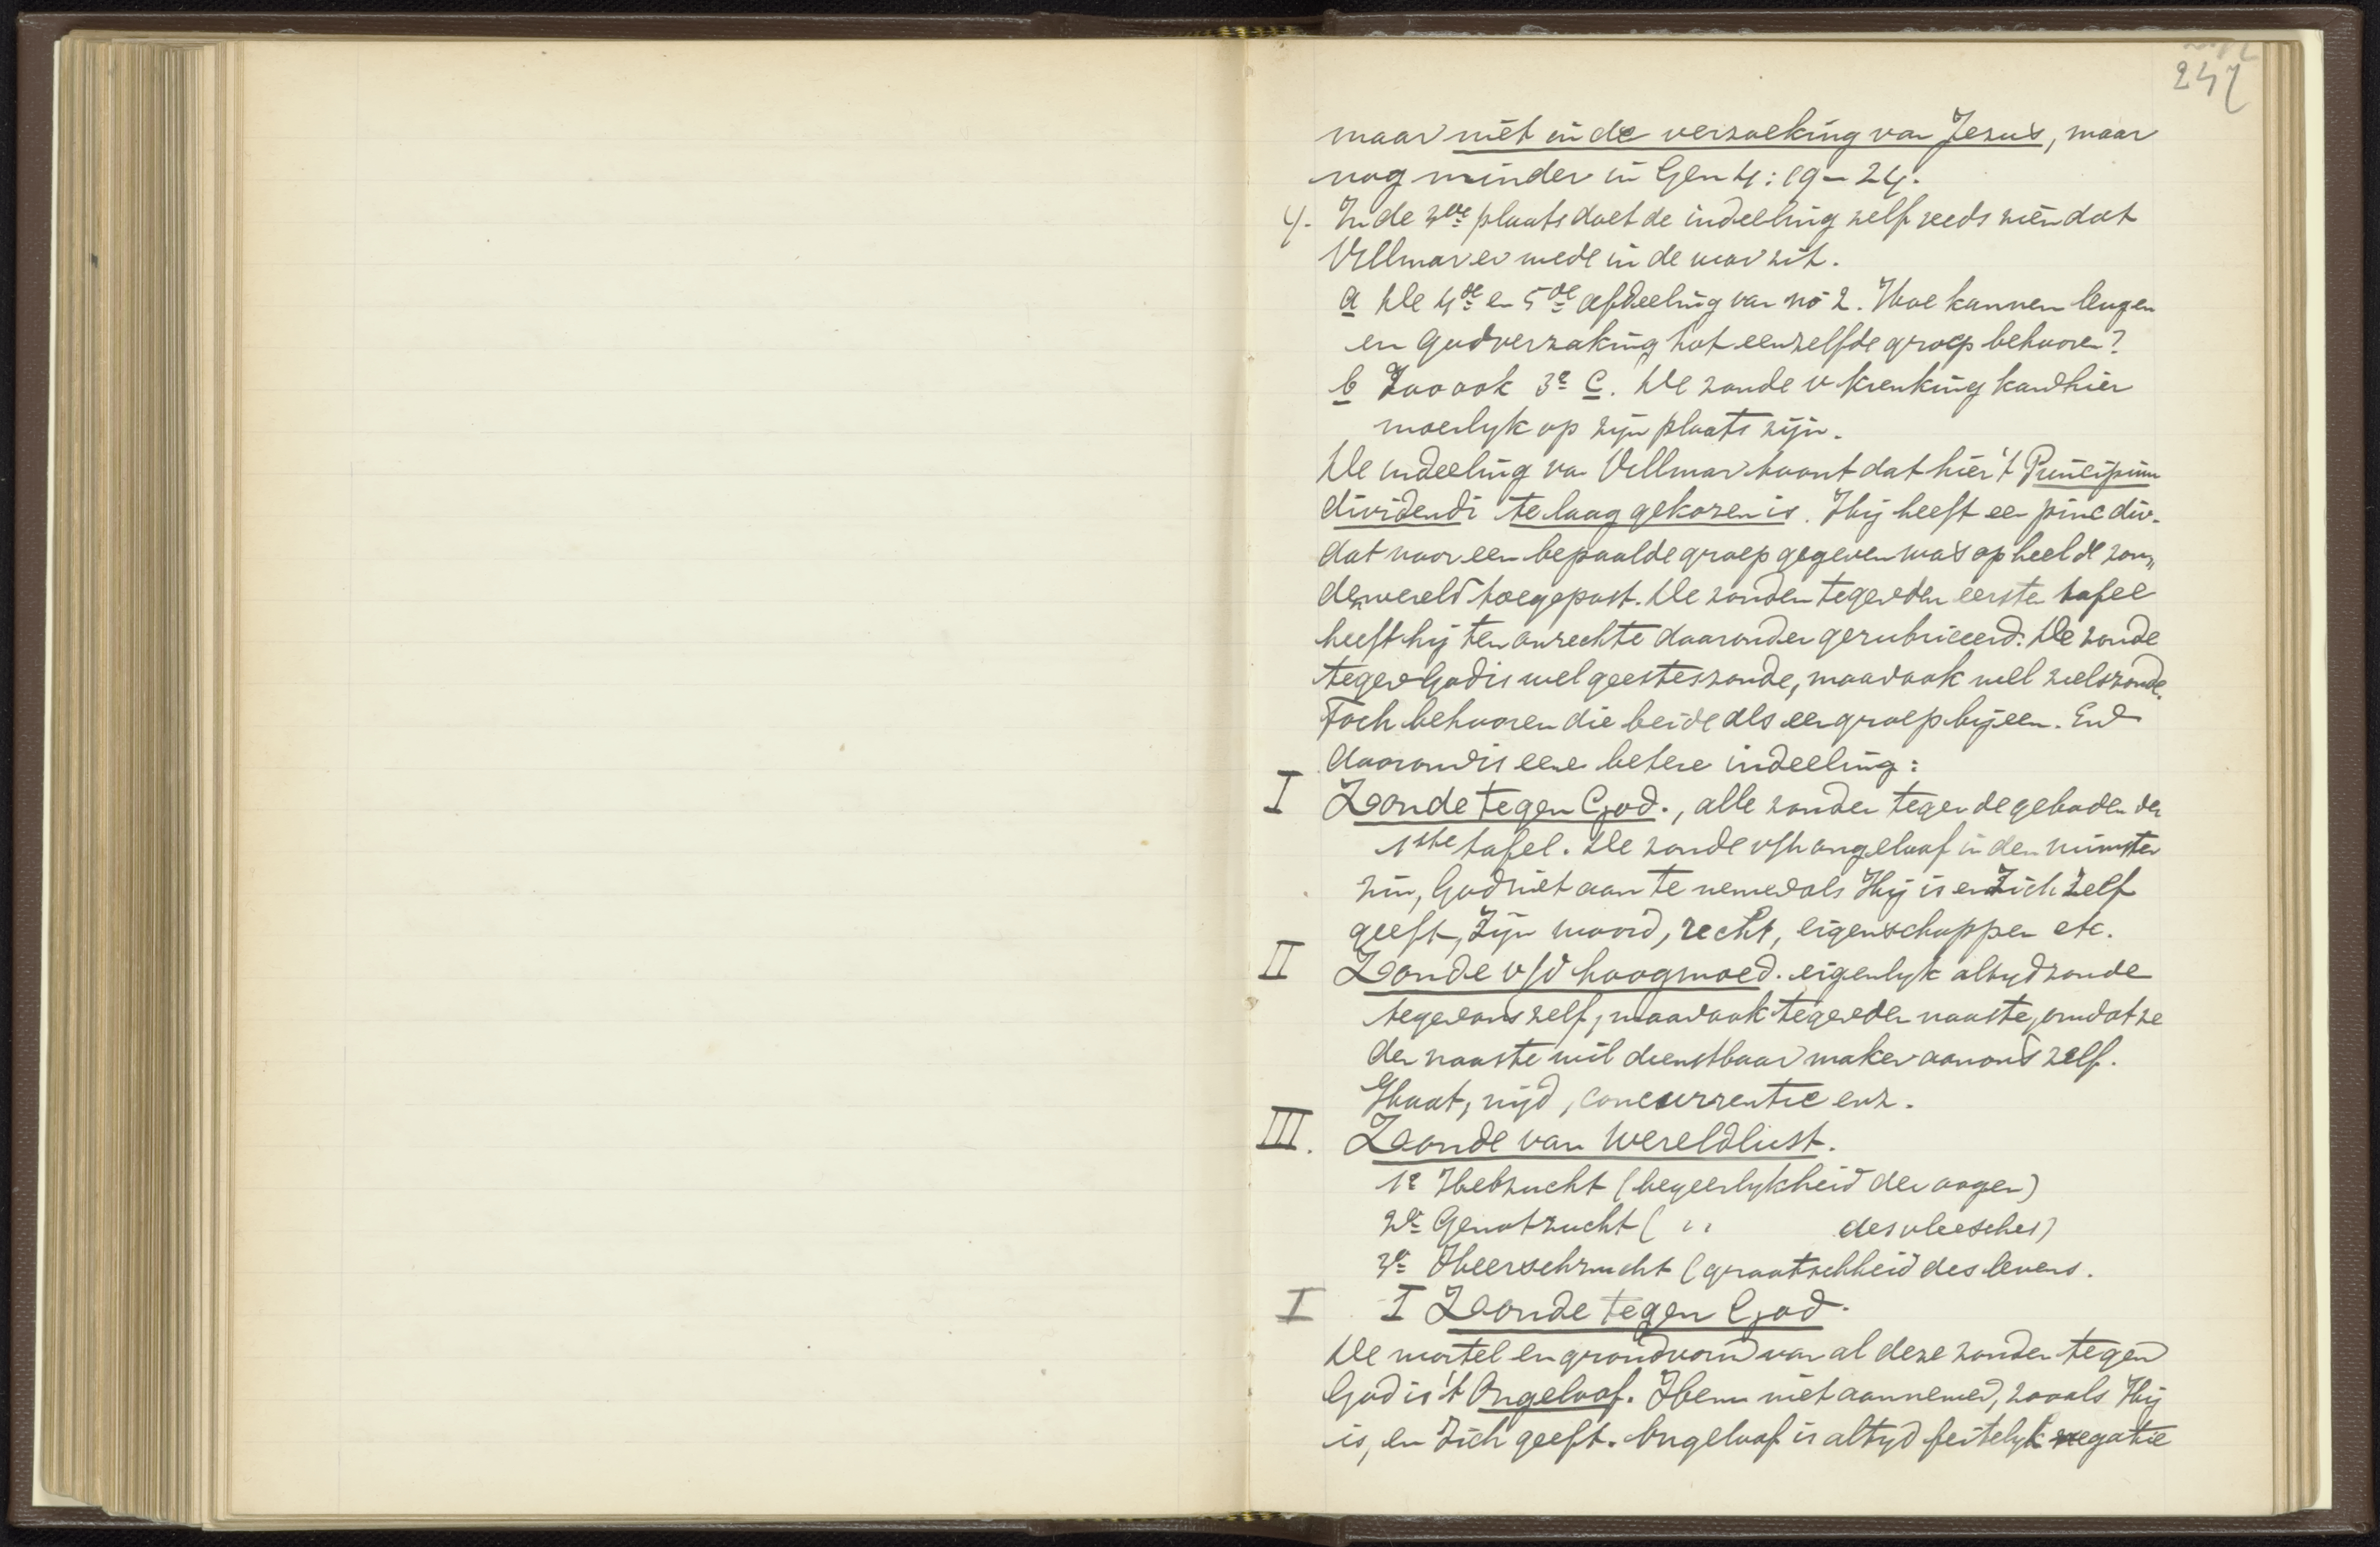 247
maar niet in de verzoeking van Jezus, maar
nog minder in Gen 4:19–24.
4. In de 2de plaats doet de indeeling zelf reeds zien dat
Villmar er mede in de war zit.
a De 4de en 5de afdeeling van no 2. Hoe kunnen leugen
en Godverzaking tot eenzelfde groep behooren?
b Zoo ook 3e C. De zonde v krenking kan hier
moeilyk op zijn plaats zijn.
De indeeling van Villmar toont dat hier 't Principium
dividendi te laag gekozen is. Hij heeft een princ div.
dat voor een bepaalde groep gegeven was op heel de zon„
denwereld toegepast. De zonden tegen den eersten tafel
heeft hij ten onrechte daaronder gerubriceerd. De zonde
tegen God is wel geesteszonde, maar ook wel zielszonde.
Toch behooren die beide als een groep bijeen. En
daarom is eene betere indeeling:
I Zonde tegen God., alle zonden tegen de geboden der
1ste tafel. De zonde v/h ongeloof in den ruimsten
zin, God niet aan te nemen als Hij is en Zich Zelf
geeft, Zijn woord, recht, eigenschappen etc.
II Zonde v/d hoogmoed. eigenlyk altyd zonde
tegen ons zelf, maar ook tegen den naaste, omdat ze
den naaste wil dienstbaar maken aan ons zelf.
Haat, nijd, concurrentie enz.
III. Zonde van Wereldlust.
1e Hebzucht (begeerlykheid der oogen)
2e Genotzucht ( ,, des vleesches)
3e Heerschzucht (grootschheid des levens.
I I Zonde tegen God.
De wortel en grondvorm van al deze zonden tegen
God is 't Ongeloof. Hem niet aannemen, zooals Hij
is, en Zich geeft. Ongeloof is altyd feitelyk negatie